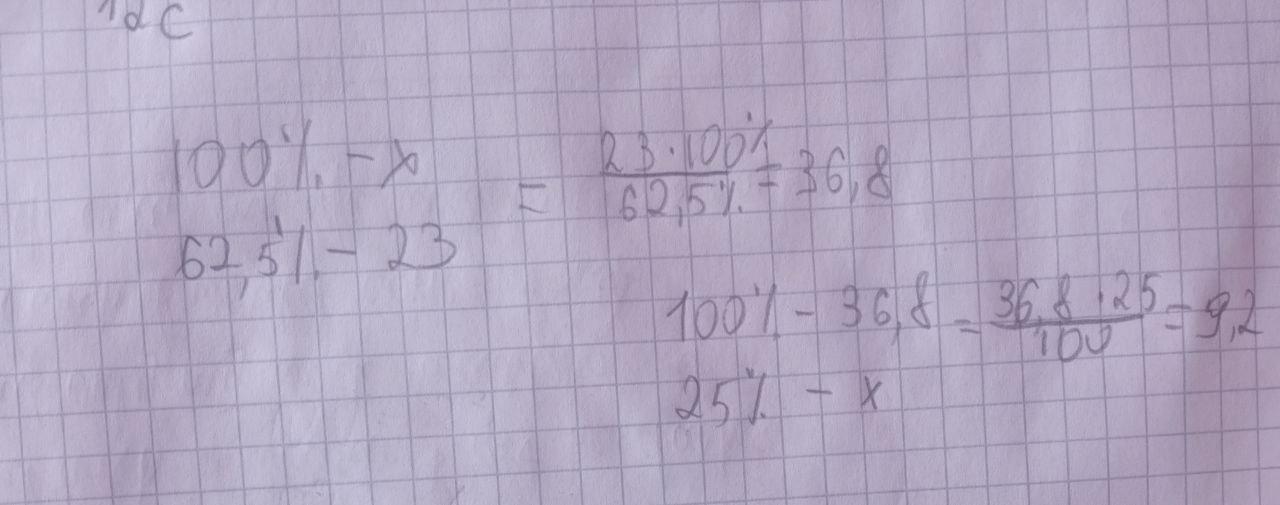 100% - x = 23·100% / 62,5% = 36,8
62,5% - 23
100% - 36,8 = 36,8·25 / 100 = 9,2
25% - x